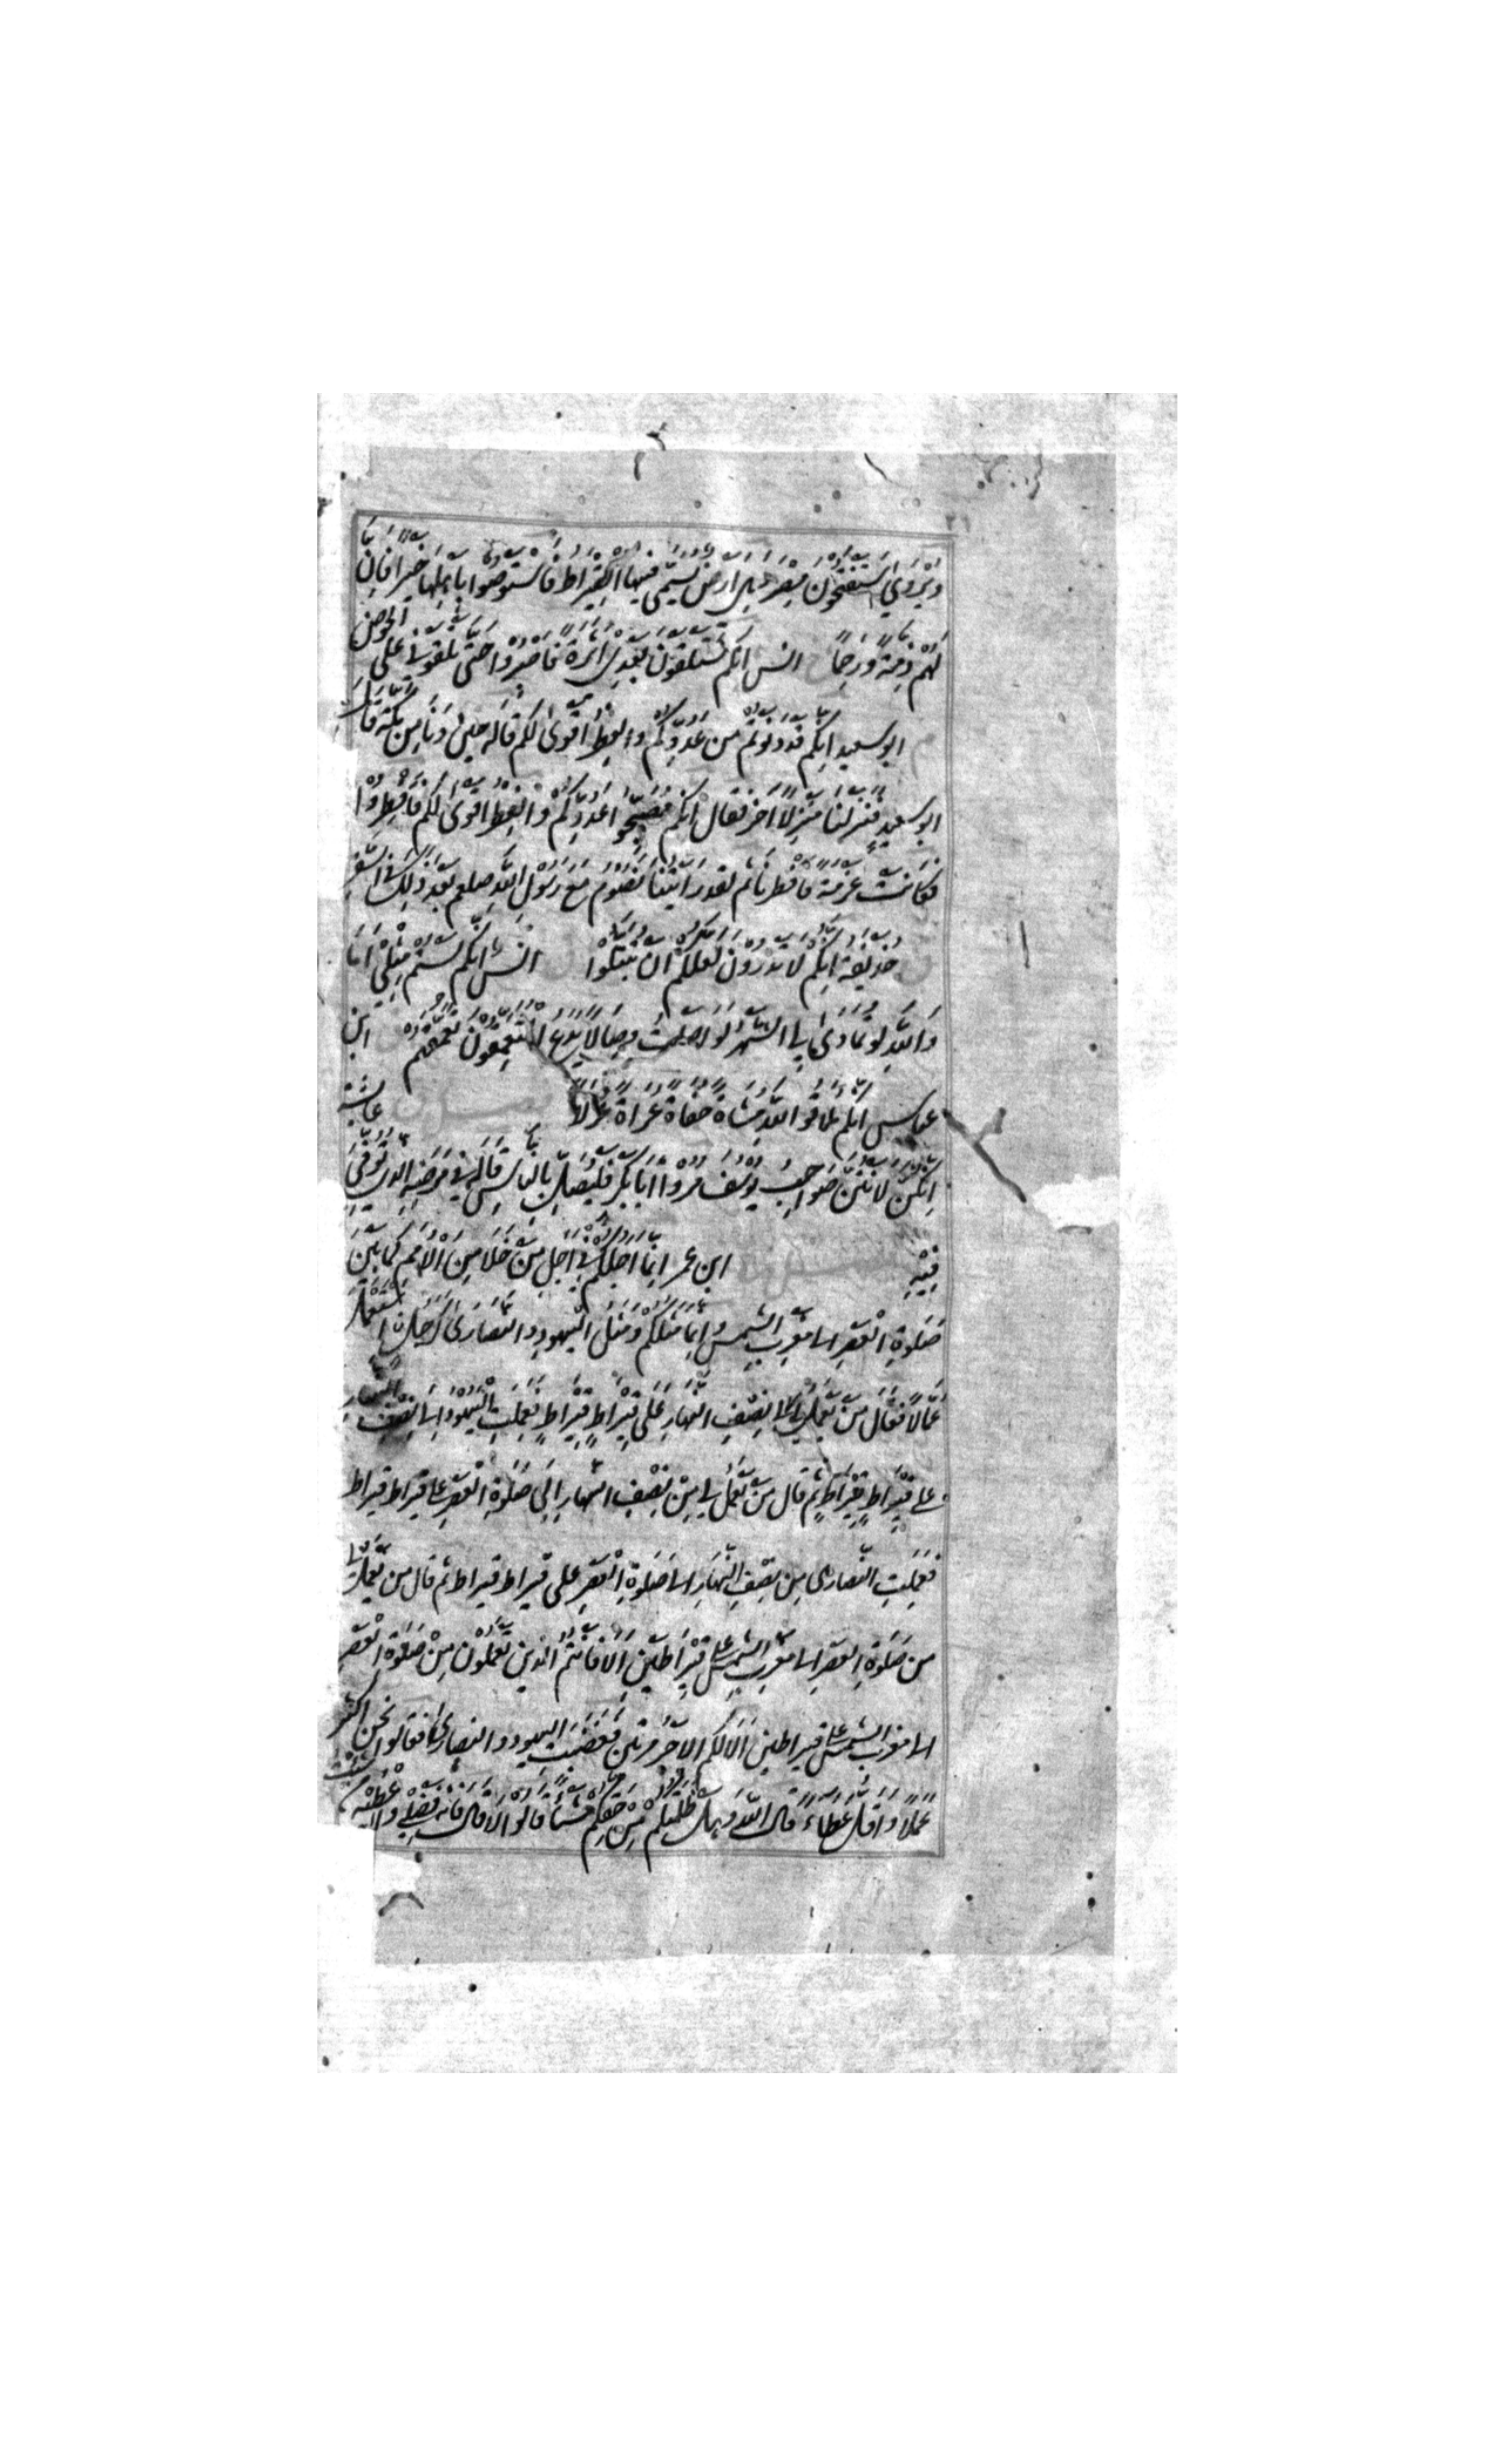 وَيُرْوَى سَتَفْتَحُونَ مِصْرَ وَهِيَ اَرْضٌ يُسَمَّى فِيهَا الْقِيرَاطُ فَاسْتَوْصُوا بِاَهْلِهَا خَيْرًا فَاِنَّ
لَهُمْ ذِمَّةً وَرَحِمًا انس اِنَّكُمْ سَتَلْقَوْنَ بَعْدِي اَثَرَةً فَاصْبِرُوْا حَتَّى تَلْقَوْنِي عَلَى الْحَوْضِ
م ابو سعيد اِنَّكُمْ قَدْ دَنَوْتُمْ مِنْ عَدُوِّكُمْ وَالْفِطْرُ اَقْوَى لَكُمْ قَالَهُ حِيْنَ دَنَا مِنْ مَكَّةَ قَالَ
ابو سعيد فَنَزَلْنَا مَنْزِلًا اٰخَرَ فَقَالَ اِنَّكُمْ مُصَبِّحُوا عَدُوِّكُمْ وَالْفِطْرُ اَقْوَى لَكُمْ فَاَفْطِرُوْا
فَكَانَتْ عَزْمَةً فَاَفْطَرْنَا ثُمَّ لَقَدْ رَاَيْتُنَا نَصُوْمُ مَعَ رَسُوْلِ اللّٰهِ صلعم بَعْدَ ذٰلِكَ فِي السَّفَرِ
ق حُذَيْفَة اِنَّكُمْ لَا تَدْرُوْنَ لَعَلَّكُمْ اَنْ تُبْتَلَوْا ق انس اِنَّكُمْ لَسْتُمْ مِثْلِي اَمَا
وَاللّٰهِ لَوْ تَمَادَى لِي الشَّهْرُ لَوَاصَلْتُ وِصَالًا يَدَعُ الْمُتَعَمِّقُوْنَ تَعَمُّقَهُمْ ق ابن
عباس اِنَّكُمْ مُلَاقُو اللّٰهِ مُشَاةً حُفَاةً عُرَاةً غُرْلًا عائشة
اِنَّكُنَّ لَاَنْتُنَّ صَوَاحِبُ يُوْسُفَ مُرُوْا اَبَا بَكْرٍ فَلْيُصَلِّ بِالنَّاسِ قَالَهُ فِي مَرَضِهِ الَّذِي تُوُفِّيَ
فِيْهِ ابن عمر اِنَّمَا اَجَلُكُمْ فِي اَجَلِ مَنْ خَلَا مِنَ الْاُمَمِ كَمَا بَيْنَ
صَلٰوةِ الْعَصْرِ اِلَى مَغْرِبِ الشَّمْسِ وَاِنَّمَا مَثَلُكُمْ وَمَثَلُ الْيَهُوْدِ وَالنَّصَارَى كَرَجُلٍ اسْتَعْمَلَ
عُمَّالًا فَقَالَ مَنْ يَعْمَلُ لِي اِلَى نِصْفِ النَّهَارِ عَلَى قِيْرَاطٍ قِيْرَاطٍ فَعَمِلَتِ الْيَهُوْدُ اِلَى نِصْفِ النَّهَارِ
عَلَى قِيْرَاطٍ قِيْرَاطٍ ثُمَّ قَالَ مَنْ يَعْمَلُ لِي مِنْ نِصْفِ النَّهَارِ اِلَى صَلٰوةِ الْعَصْرِ عَلَى قِيرَاط قِيرَاط
فَعَمِلَتِ النَّصَارَى مِنْ نِصْفِ النَّهَارِ اِلَى صَلٰوةِ الْعَصْرِ عَلَى قِيْرَاط قِيْرَاط ثُمَّ قَالَ مَنْ يَعْمَلُ لِي
مِنْ صَلٰوةِ الْعَصْرِ اِلَى مَغْرِبِ الشَّمْسِ عَلَى قِيْرَاطَيْنِ اَلَا فَاَنْتُمُ الَّذِيْنَ تَعْمَلُوْنَ مِنْ صَلٰوةِ الْعَصْرِ
اِلَى مَغْرِبِ الشَّمْسِ عَلَى قِيرَاطَيْنِ اَلَا لَكُمُ الْاَجْرُ مَرَّتَيْنِ فَغَضِبَتِ الْيَهُوْدُ وَالنَّصَارَى فَقَالُوا نَحْنُ اَكْثَرُ
عَمَلًا وَاَقَلُّ عَطَاءً قَالَ اللّٰهُ وَهَلْ ظَلَمْتُكُمْ مِنْ حَقِّكُمْ شَيْئًا قَالُوا لَا قَالَ فَاِنَّهُ فَضْلِي اُعْطِيْهِ مَنْ شِئْتُ